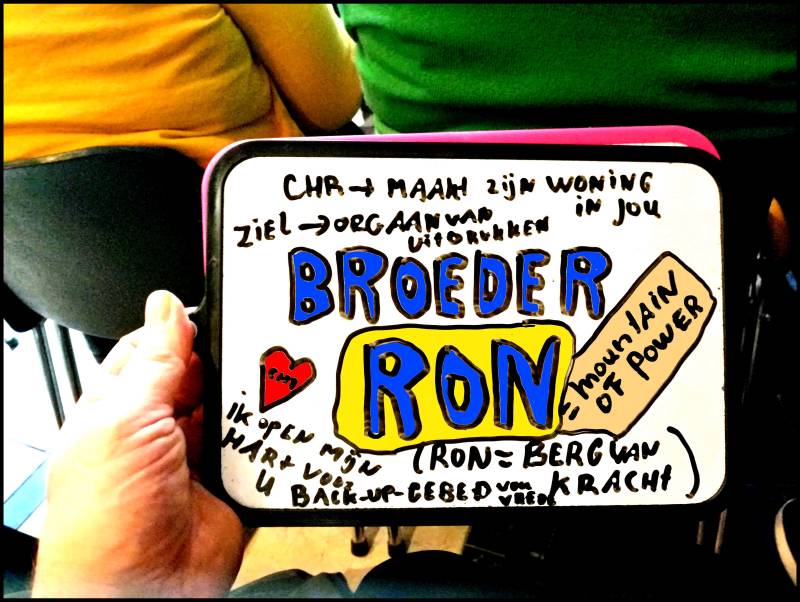 CHR → MAAKt zijn WONING
IN JOU
ZIEL → ORGAAN VAN
UitDRUKKEN
BROEDER
RON
= mountAIN
OF POWER
iK OPEN MijN
HARt VOOR
U
(RON = BERG VAN
KRACHt)
BACK-UP-GEBED